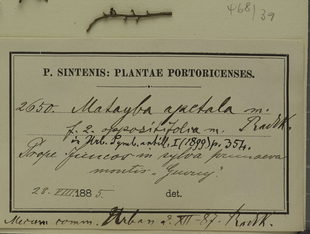 468/39
P. SINTENIS: PLANTAE PORTORICENSES.
2650. Matayba apetala m. Radlk.
f. 2. oppositifolia m.
in Urb. Symb. antill. I (1899) p. 354.
Prope Juncos in sylva primaeva
montis
28. VIII 1885. det.
comm. Urban d. XII-87. Radlk.